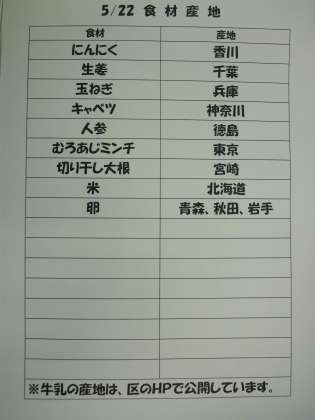 5/22 食材産地
食材 産地
にんにく 香川
生姜 千葉
玉ねぎ 兵庫
キャベツ 神奈川
人参 徳島
むろあじミンチ 東京
切り干し大根 宮崎
米 北海道
卵 青森、秋田、岩手
※牛乳の産地は、区のHPで公開しています。